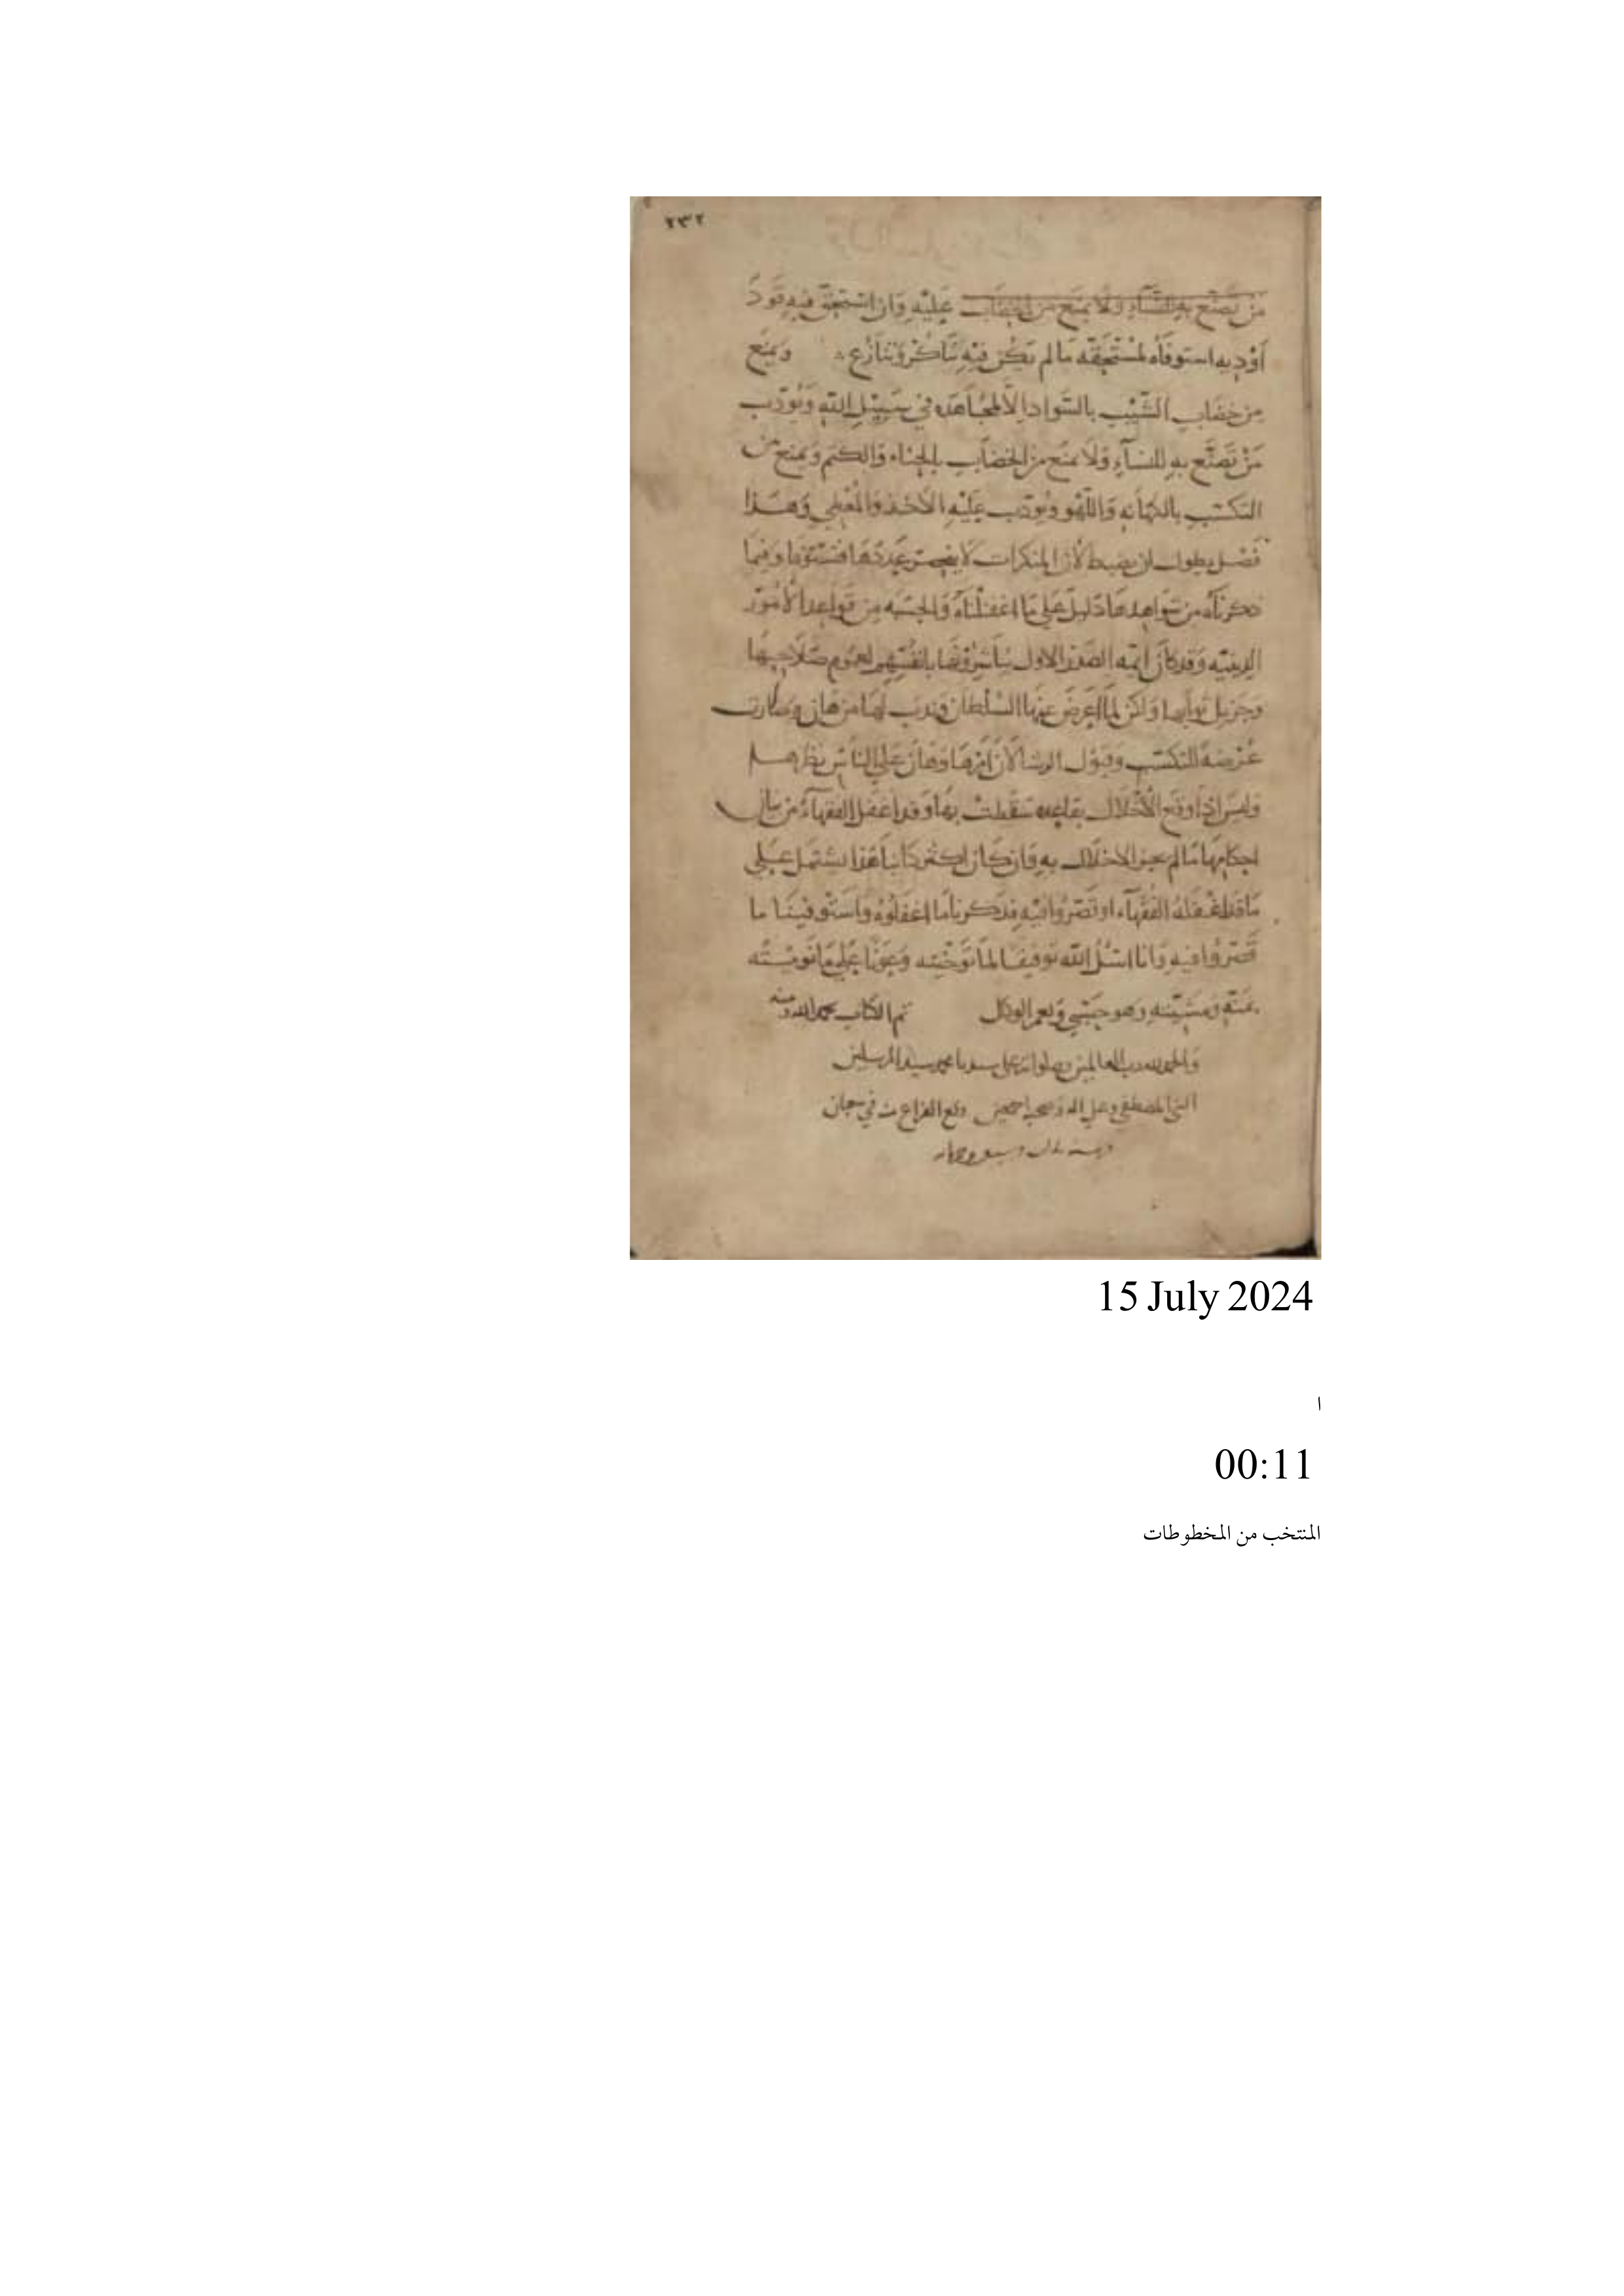 ٢٣٢
من تصنع به للنساء ولا يمنع من الخضاب عليه وان استحق فيه قود
او ديه استوفاه لمستحقه ما لم يكن فيه تناكر وتنازع ويمنع
من خضاب الشيب بالسواد الا لمجاهد في سبيل الله ويودب
من تصنع به للنساء ولا يمنع من الخضاب بالحناء والكتم ويمنع من
التكسب بالكهانه واللهو ويودب عليه الاخذ والمعطي وهذا
فصل يطول ان يضبط لان المنكرات لا ينحصر عددها فتستوفا وفيما
ذكرناه من شواهدها دليل على ما اغفلناه والحسبه من قواعد الامور
الدينيه وقد كان ايمه الصدر الاول يباشرونها بانفسهم لعموم صلاحها
وجزيل ثوابها ولكن لما اعرض عنها السلطان وندب لها من هان وصارت
عرضة للتكسب وقبول الرشا لان امرها وهان على الناس نظرهم
وليس اذا وقع الاخلال بقاعده سقطت بها وقد اغفل الفقهاء من بيان
احكامها ما لم يجز الاخلال به وان كان اكثر كتابنا هذا يشتمل على
ما قد اغفله الفقهاء او قصروا فيه فذكرنا ما اغفلوه واستوفينا ما
قصروا فيه وانا اسئل الله توفيقا لما توخيته وعونا على ما نويته
بمنه ومشيئته وهو حسبي ونعم الوكيل تم الكتاب بحمد الله ومنه
والحمد لله رب العالمين وصلواته على سيدنا محمد سيد المرسلين
النبي المصطفى وعلى اله وصحبه اجمعين وقع الفراغ منه في شعبان
15 July 2024
ا
00:11
المنتخب من المخطوطات